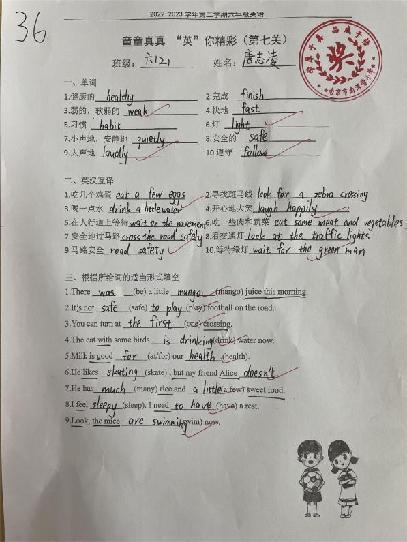 36
2022-2023学年第二学期六年级英语
童童真真 “英”你精彩（第七关）
班级: 六(2) 姓名:
一、单词
1.健康的 healthy 2.完成 finish
3.弱的，软弱的 weak 4.快地 fast
5.习惯 habit 6.灯 light
7.小声地，安静地 quietly 8.安全的 safe
9.大声地 loudly 10.遵守 follow
二、英汉互译
1.吃几个鸡蛋 eat a few eggs 2.寻找斑马线 look for a zebra crossing
3.喝一点水 drink a little water 4.开心地大笑 laugh happily
5.在人行道上等候 wait on the pavement 6.吃一些肉和蔬菜 eat some meat and vegetables
7.安全地过马路 cross the road safely 8.看交通灯 look at the traffic lights
9.马路安全 road safety 10.等待绿灯 wait for the green man
三、根据所给词的适当形式填空
1.There was (be) a little mango (mango) juice this morning
2.It's not safe (safe) to play (play) football on the road.
3.You can turn at the first (one) crossing.
4.The cat with some birds is drinking (drink) water now.
5.Milk is good for (at/for) our health (health).
6.He likes skating (skate), but my friend Alice doesn't
7.He has much (many) rice and a little (a few) sweet food.
8.I feel sleepy (sleep). I need to have (have) a rest.
9.Look, the mice are swimming (swim) now.